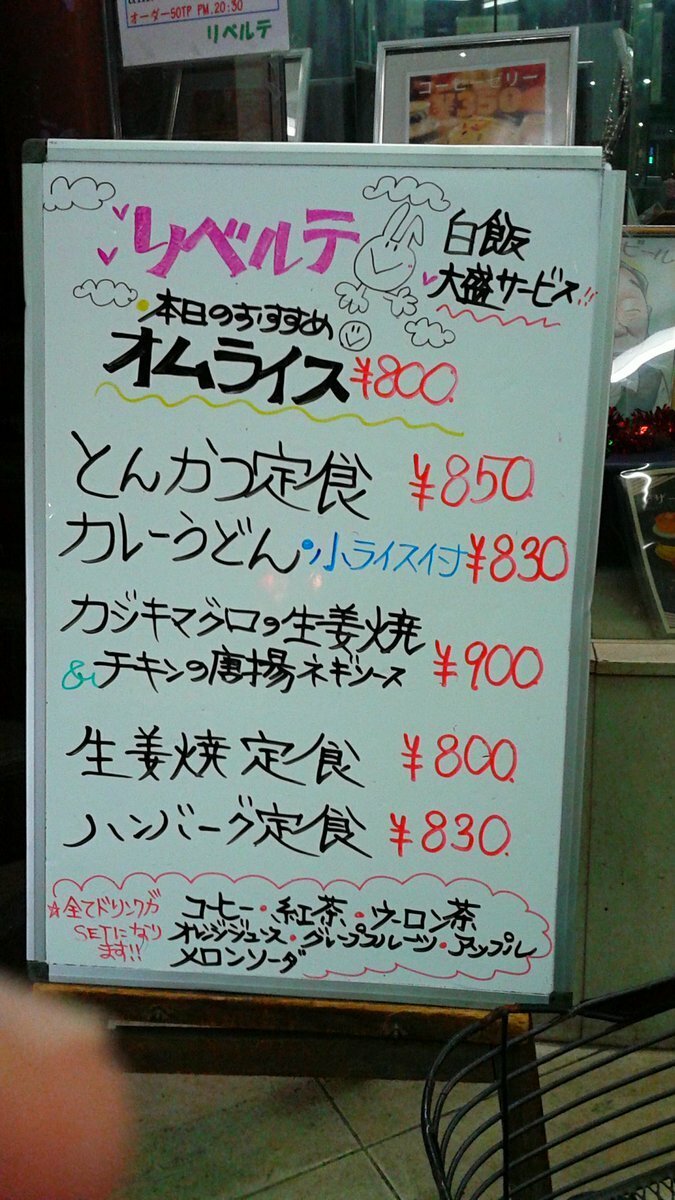 オーダーSOTP PM.20:30
リベルテ
コーヒーゼリー
¥350
リベルテ
白飯
大盛サービス!!
・本日のおすすめ
オムライス ¥800.
とんかつ定食 ¥850.
カレーうどん・小ライス付 ¥830
カジキマグロの生姜焼
&チキンの唐揚ネギソース ¥900
生姜焼定食 ¥800.
ハンバーグ定食 ¥830.
☆全てドリンクが
SETになり
ます!!
コーヒー・紅茶・ウーロン茶
オレンジジュース・グレープフルーツ・アップル
メロンソーダ